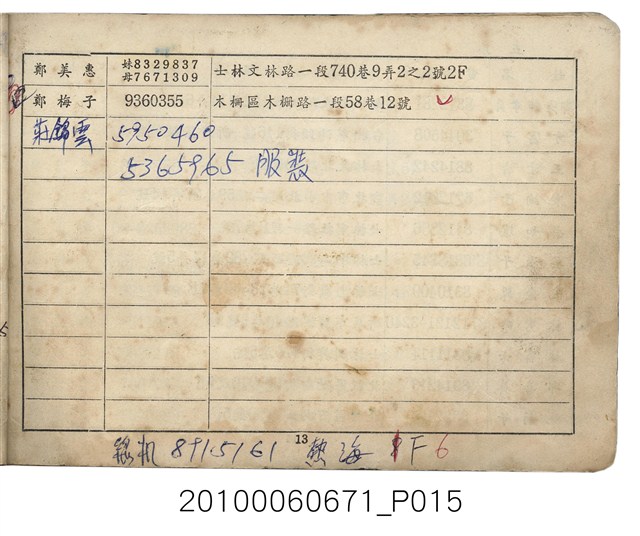 鄭美惠 妹8329837 母7671309 士林文林路一段740巷9弄2之2號2F
鄭梅子 9360355 木柵區木柵路一段58巷12號
莊錦雲 5950460
5365965 服裝
13
8915161 熱海 F 6
20100060671_P015